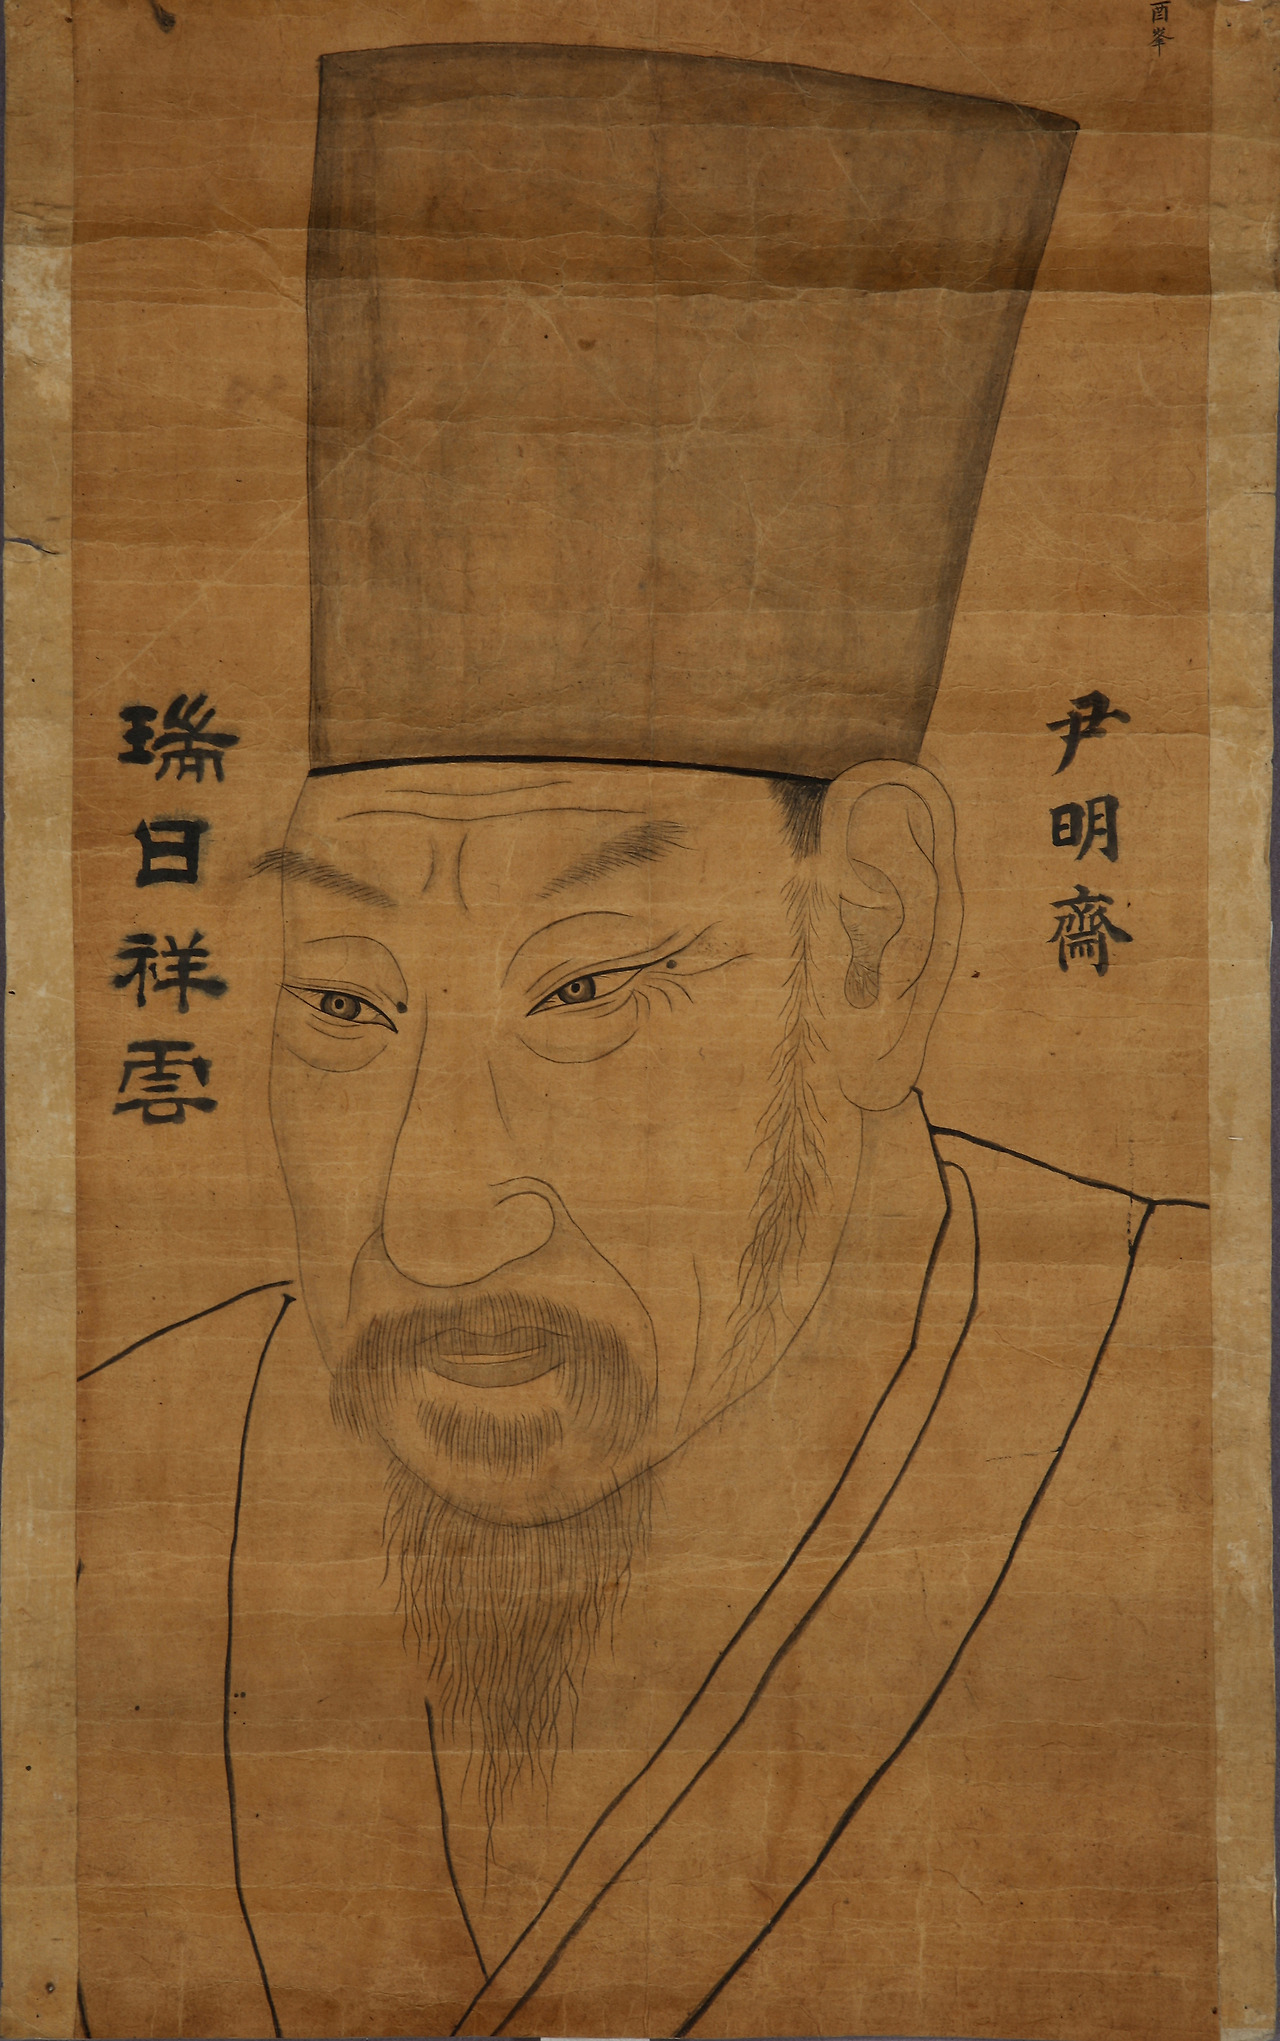 酉峯
尹明齋
瑞日祥雲